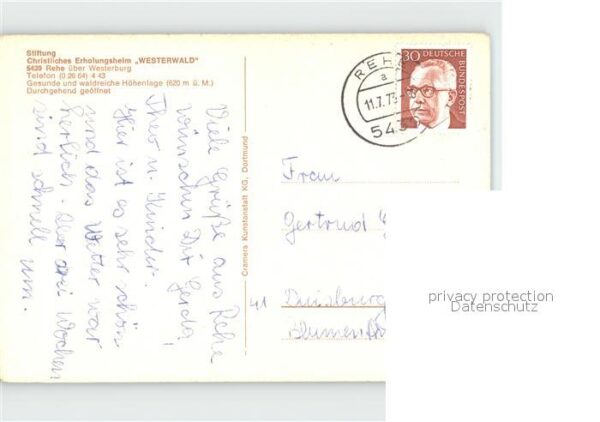 Stiftung
Christliches Erholungsheim „WESTERWALD"
5439 Rehe über Westerburg
Telefon (0 26 64) 4 43
Gesunde und waldreiche Höhenlage (620 m ü. M.)
Durchgehend geöffnet
Viele Grüße aus Rehe
wünschen Dir Gerda,
Theo u. Kinder.
Hier ist es sehr schön
und das Wetter war
herlich. Aber drei Wochen
sind schnell um.
Cramers Kunstanstalt KG, Dortmund
REHE
a
11.7.73
543
30 DEUTSCHE
BUNDESPOST
Frau
Gertrud
41 Duisburg
privacy protection
Datenschutz